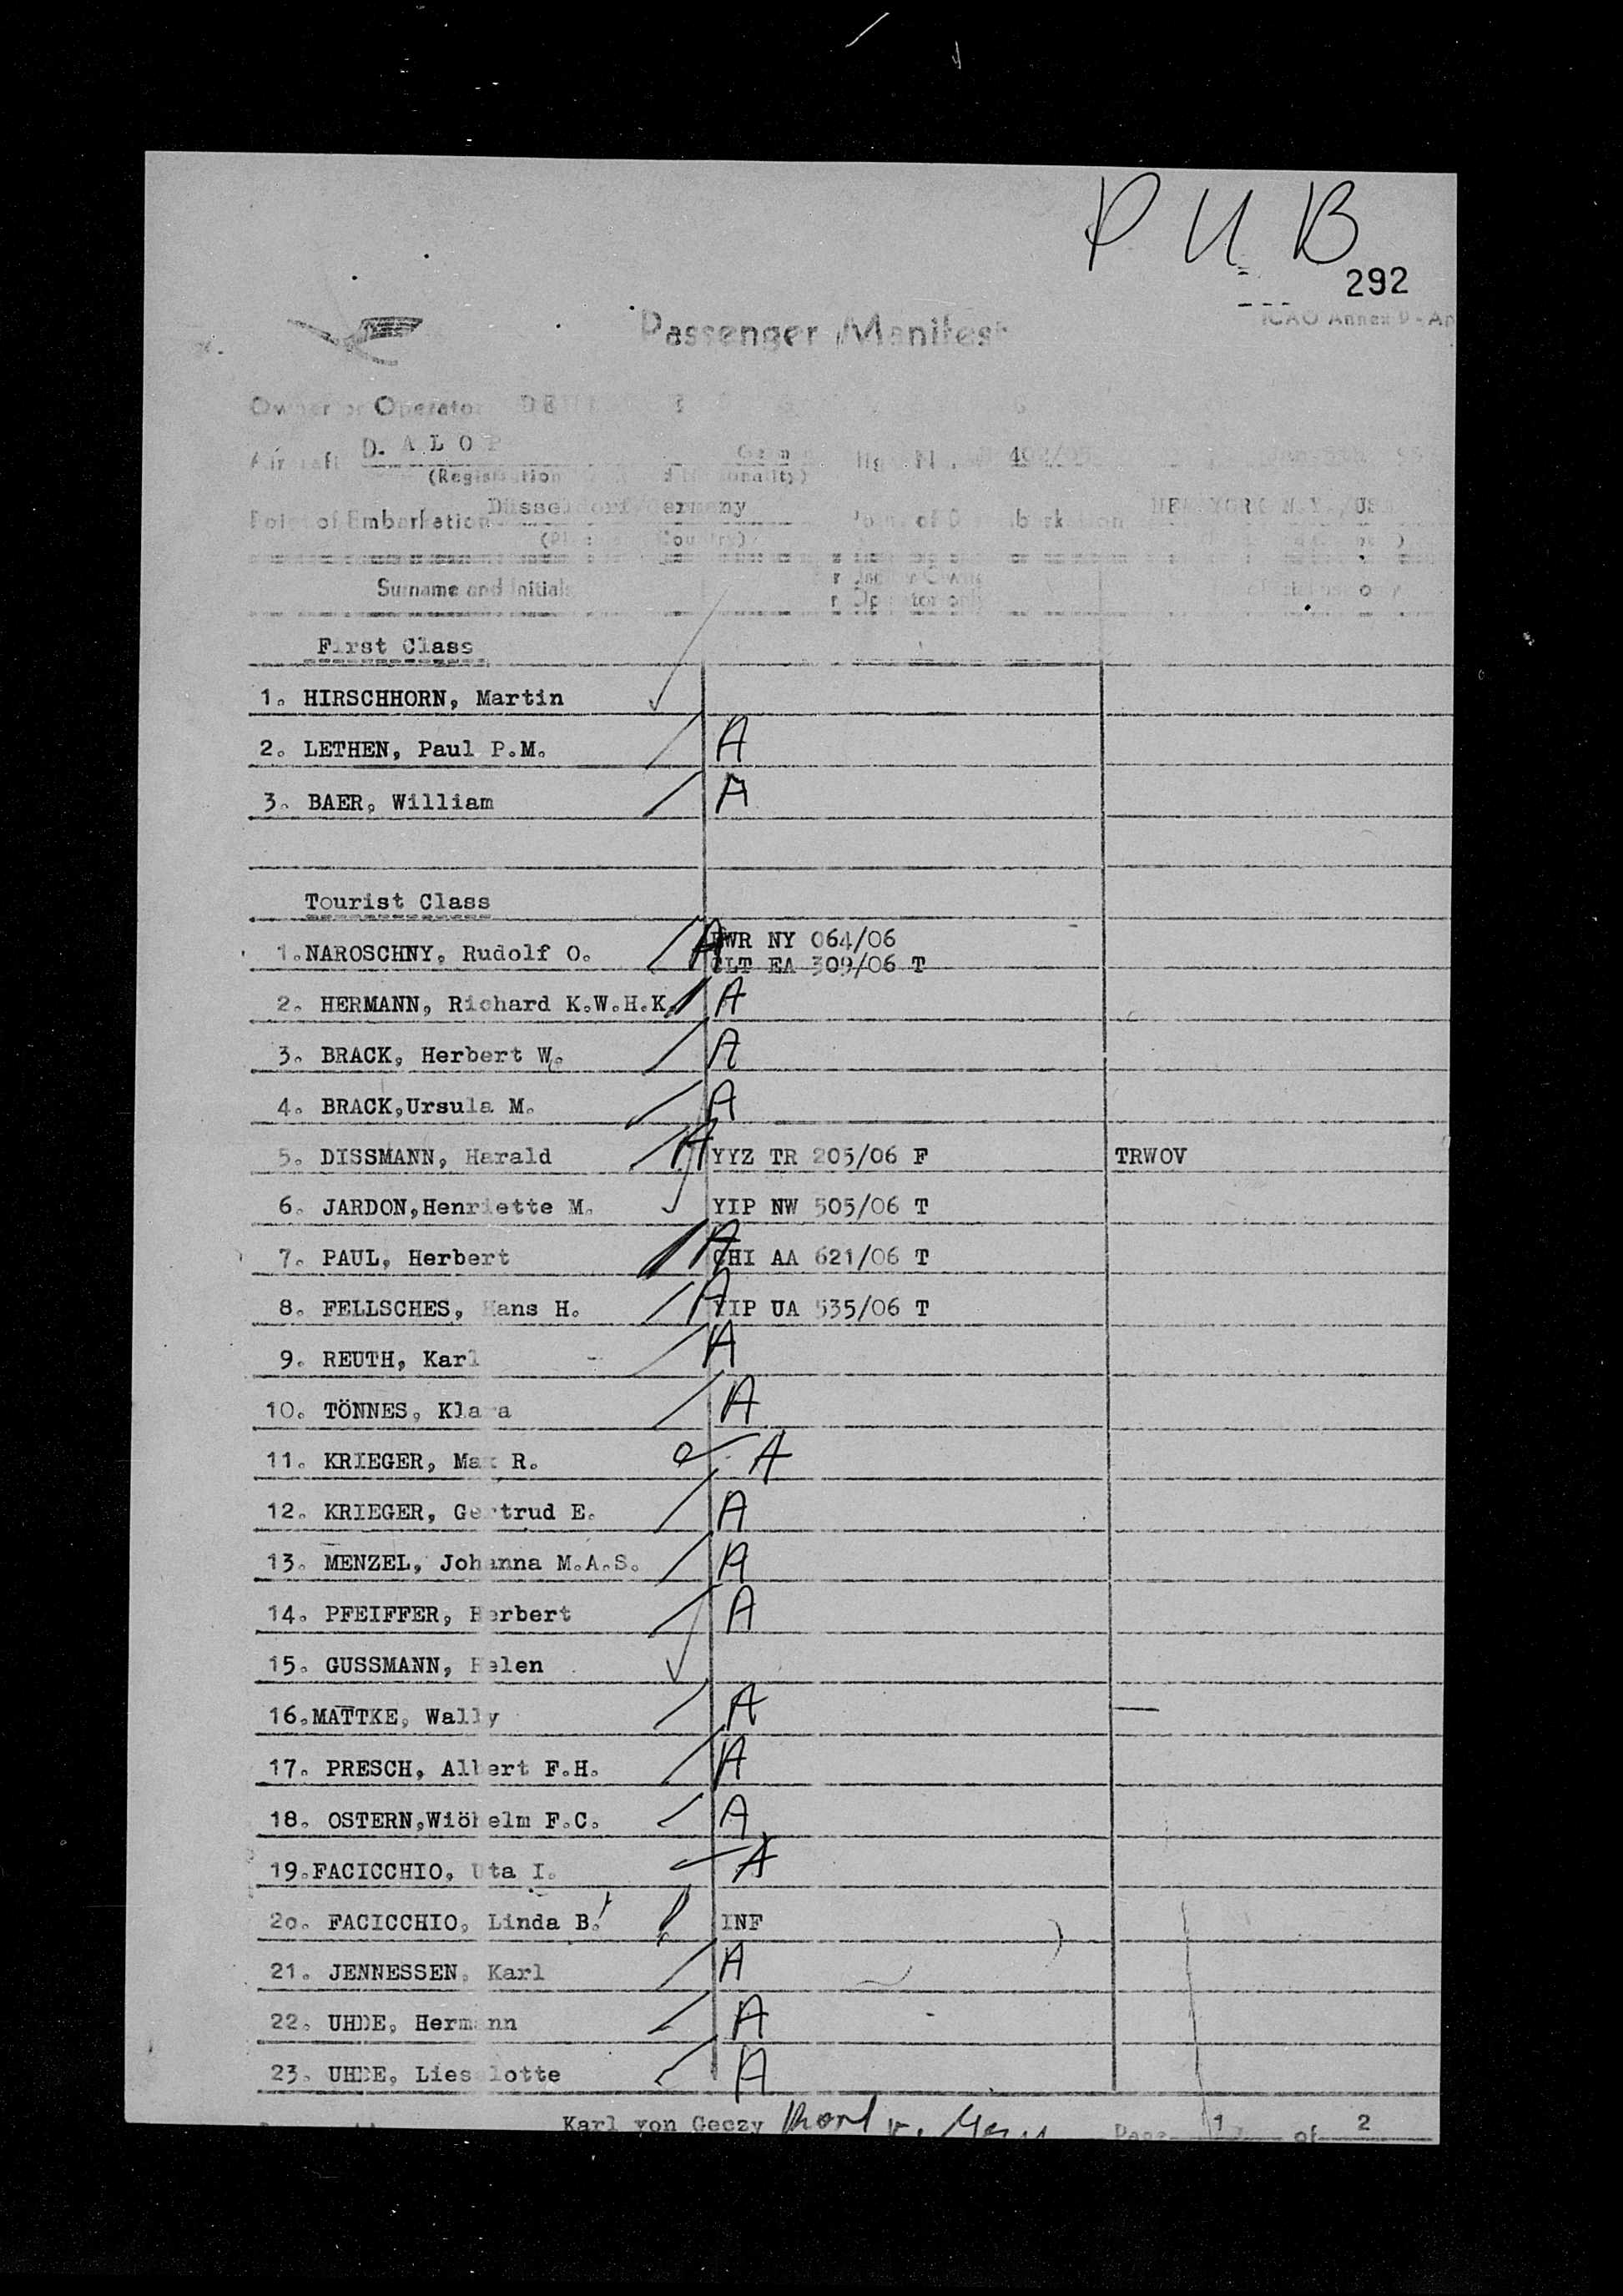 P U B
292
Passenger Manifest
ICAO Annex 9 - Ap
Owner or Operator
Aircraft D. A L O P
(Registration
Point of Embarkation Düsseldorf/Germany Point of Disembarkation NEW YORK N.Y./USA
Surname and Initials
First Class
1. HIRSCHHORN, Martin
2. LETHEN, Paul P.M. A
3. BAER, William A
Tourist Class
1.NAROSCHNY, Rudolf O. A EWR NY 064/06
CLT EA 309/06 T
2. HERMANN, Richard K.W.H.K. A
3. BRACK, Herbert W. A
4. BRACK,Ursula M. A
5. DISSMANN, Harald A YYZ TR 205/06 F TRWOV
6. JARDON,Henriette M. YIP NW 505/06 T
7. PAUL, Herbert A CHI AA 621/06 T
8. FELLSCHES, Hans H. A YIP UA 535/06 T
9. REUTH, Karl A
10. TÖNNES, Klara A
11. KRIEGER, Max R. A
12. KRIEGER, Gertrud E. A
13. MENZEL, Johanna M.A.S. A
14. PFEIFFER, Herbert A
15. GUSSMANN, Helen
16.MATTKE, Wally A
17. PRESCH, Albert F.H. A
18. OSTERN,Wiöhelm F.C. A
19.FACICCHIO, Uta I. A
2o. FACICCHIO, Linda B. INF
21. JENNESSEN, Karl A
22. UHDE, Hermann A
23. UHDE, Lieselotte A
Karl von Geczy Page 1 of 2